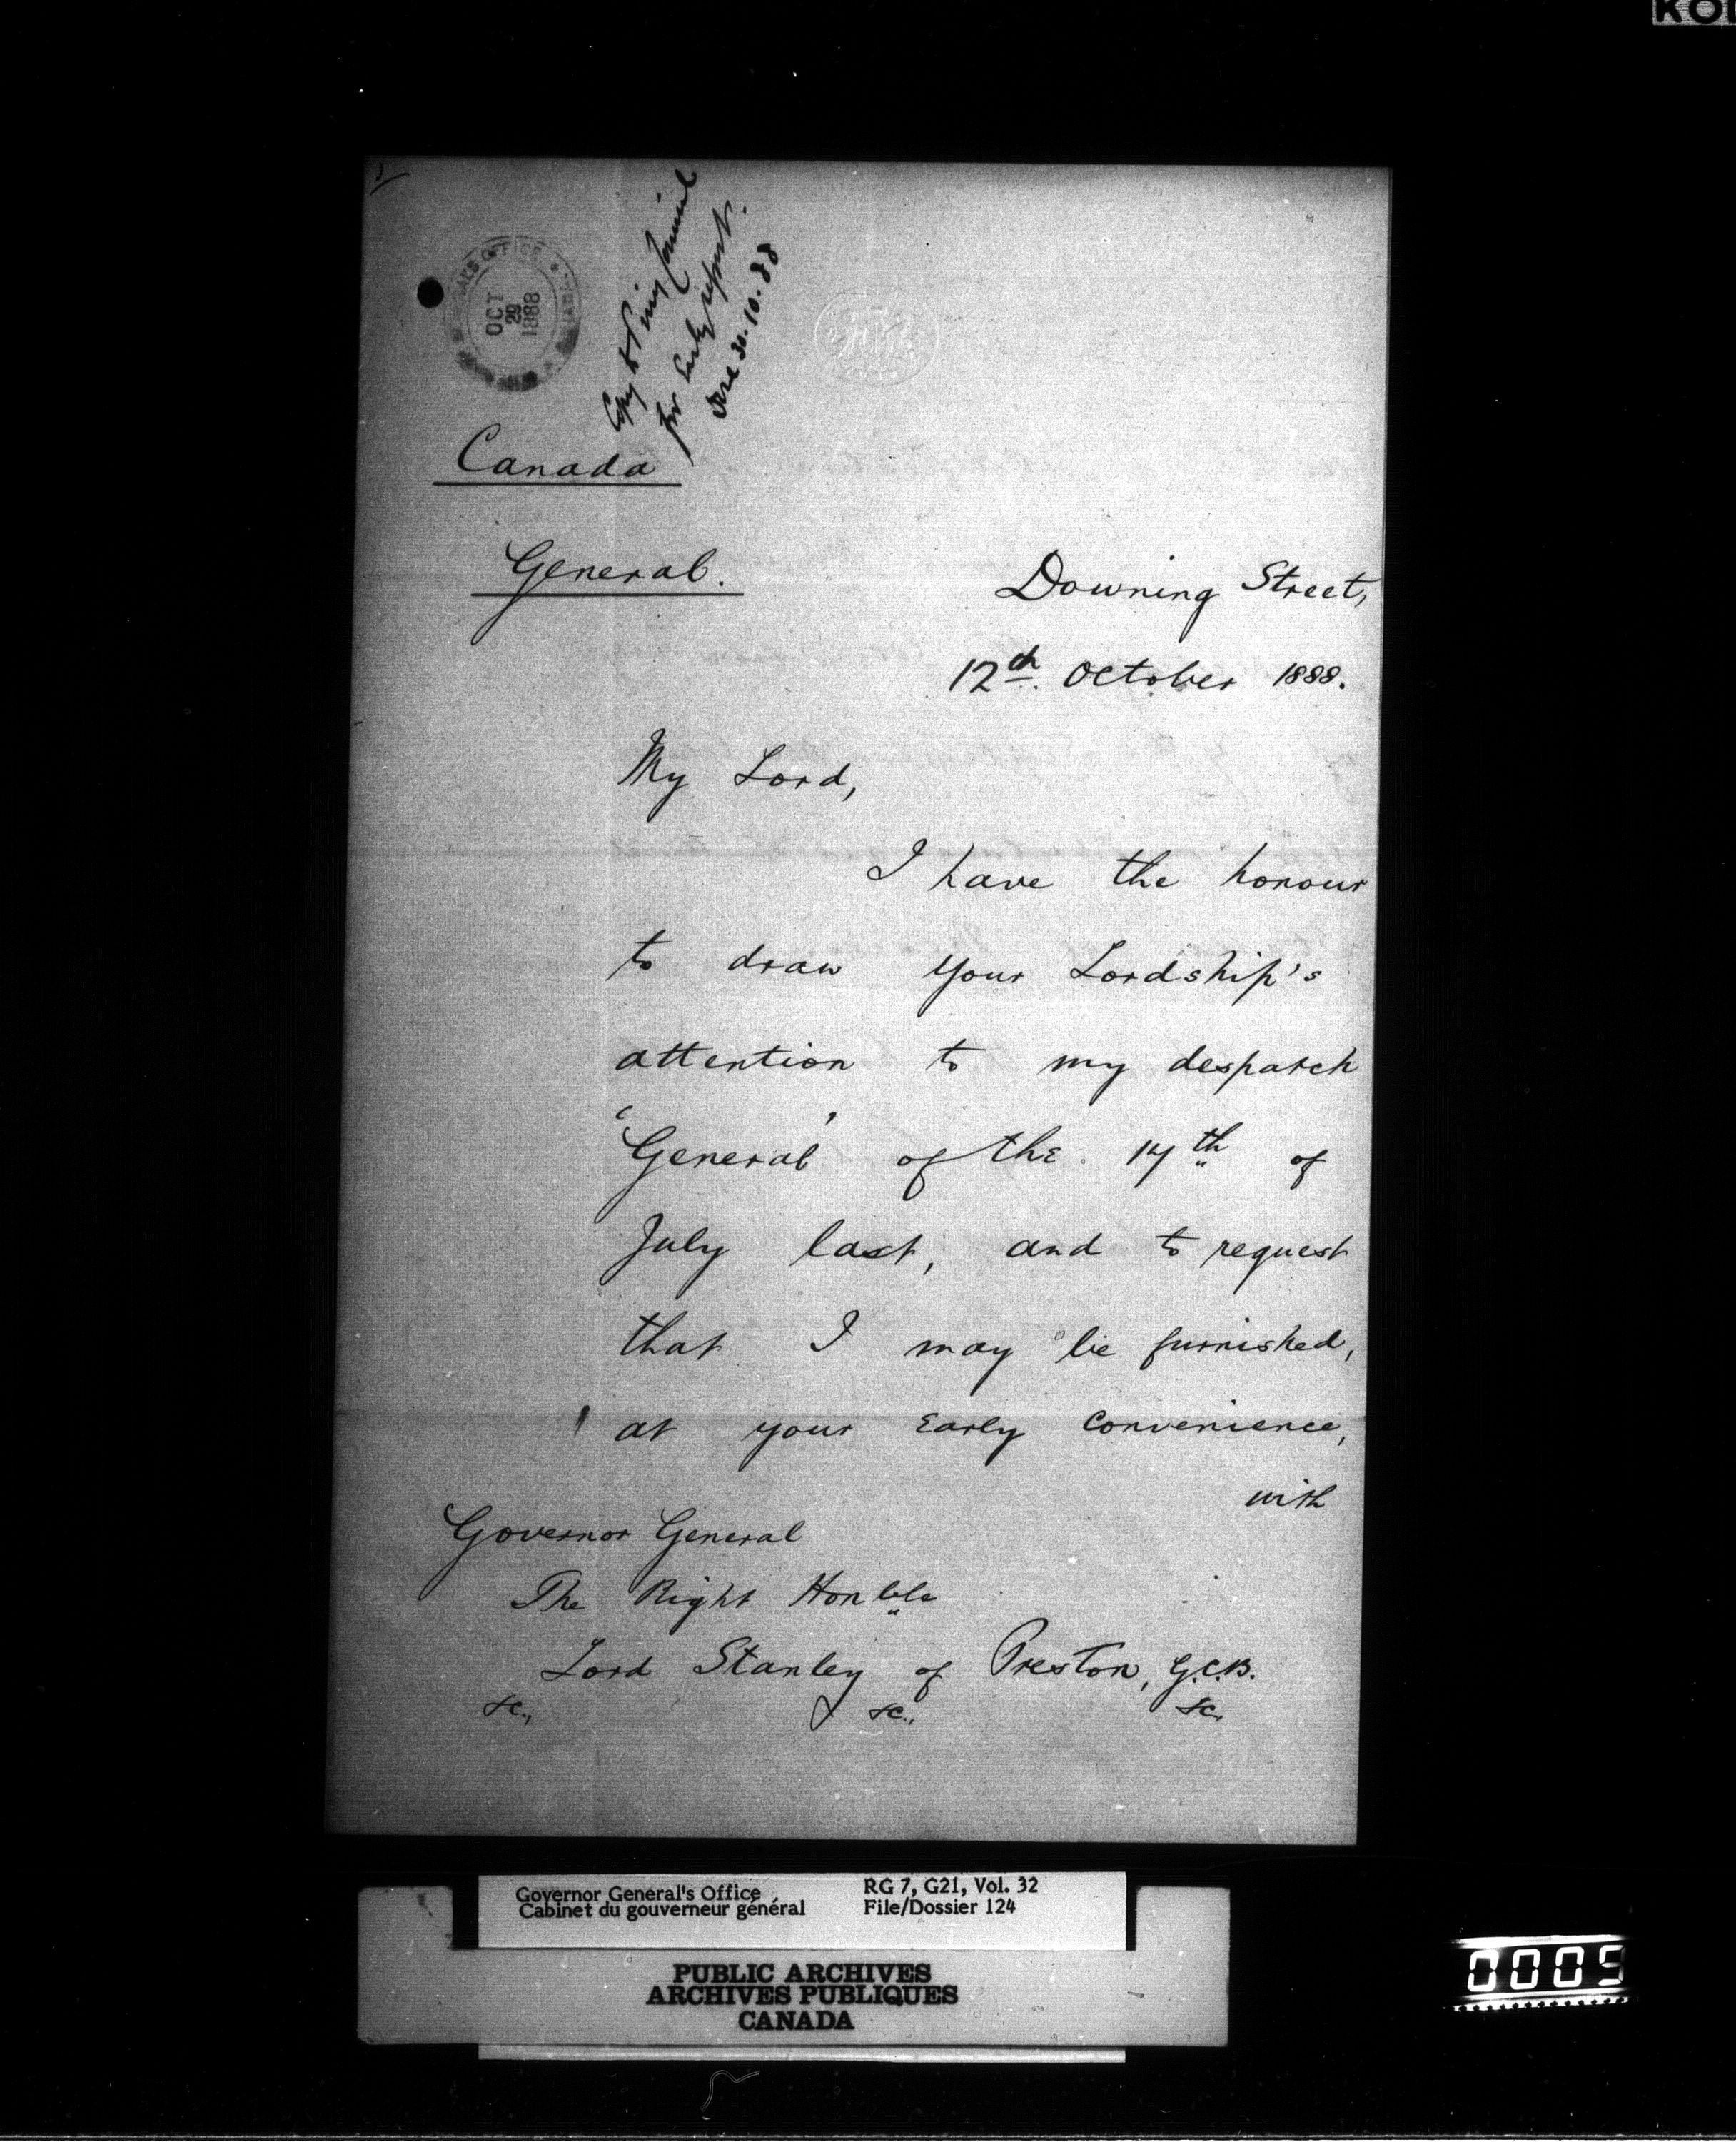 KOD
GENERAL'S OFFICE
OCT
29
1888
Copy to Privy Council
for early report.
30.10.88
Canada
General.
Downing Street,
12th. October 1888.
My Lord,
I have the honour
to draw your Lordship's
attention to my despatch
'General' of the 14th of
July last, and to request
that I may be furnished,
at your early convenience,
with
Governor General
The Right Honble
Lord Stanley of Preston, G.C.B.
&c., &c., &c.
Governor General's Office
Cabinet du gouverneur général
RG 7, G21, Vol. 32
File/Dossier 124
PUBLIC ARCHIVES
ARCHIVES PUBLIQUES
CANADA
0005